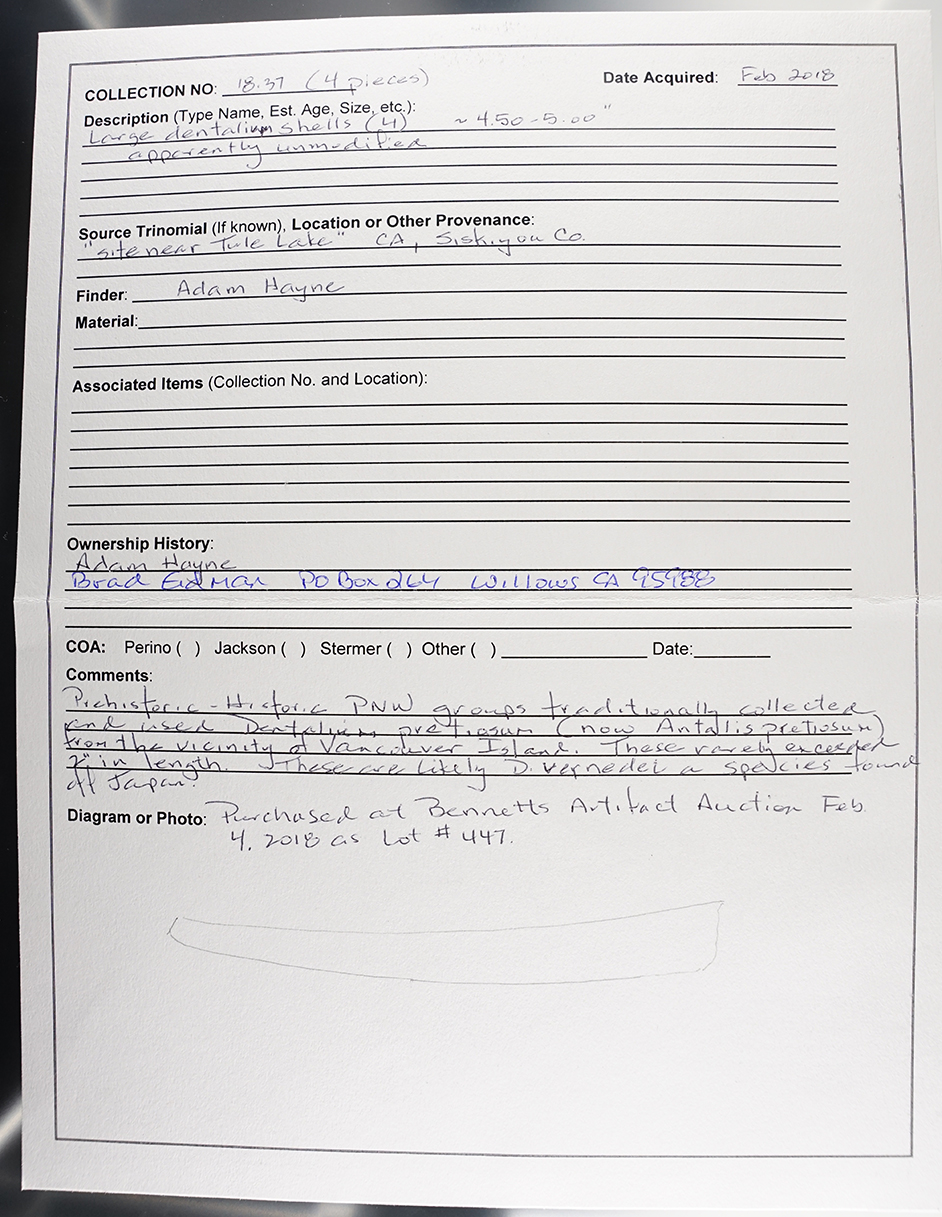 COLLECTION NO: 18.37 (4 pieces) Date Acquired: Feb 2018
Description (Type Name, Est. Age, Size, etc.):
Large dentalium shells (4) ~ 4.50-5.00"
apparently unmodified
Source Trinomial (If known), Location or Other Provenance:
"site near Tule Lake" CA, Siskiyou Co.
Finder: Adam Hayne
Material:
Associated Items (Collection No. and Location):
Ownership History:
Adam Hayne
Brad Eidman PO Box 264 Willows CA 95988
COA: Perino ( ) Jackson ( ) Stermer ( ) Other ( ) Date:
Comments:
Prehistoric-Historic PNW groups traditionally collected
and used Dentalium pretiosum (now Antalis pretiosum)
from the vicinity of Vancouver Island. These rarely exceeded
2" in length. These are likely D. vernedei a species found
off Japan.
Diagram or Photo: Purchased at Bennetts Artifact Auction Feb
4, 2018 as Lot # 447.